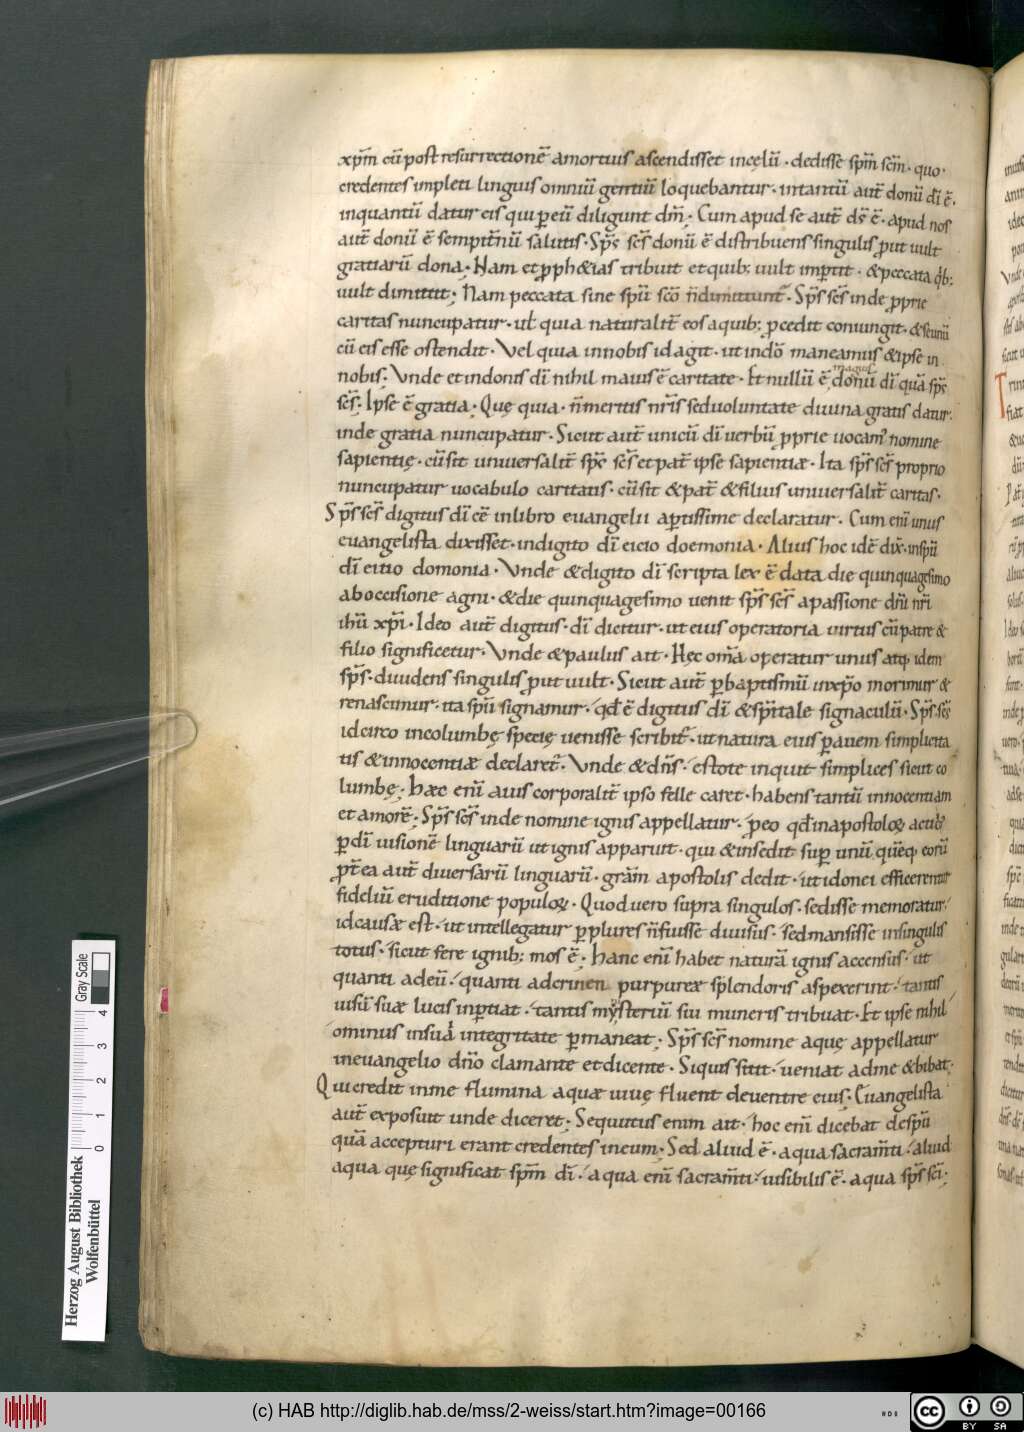 xp̄m cū post resurrectionē amortuis ascendisset incęlū · dedisse sp̄m sc̄m · quo
credentes impleti linguis omniū gentiū loquebantur · intantū aūt donū dī ē ·
inquantū datur eis qui ꝑ eū diligunt dm̄ ; Cum apud se aūt ds̄ ē · apud nos
aūt donū ē sempit̄nū salutis · Sp̄s sc̄s donū ē distribuens singulis prout uult
gratiarū dona · Nam et prph&ias tribuit et quib; uult imꝑtit · & peccata qⁱb;
uult dimittit ; Nam peccata sine sp̄u sc̄o n̄ dimittunt̄ · Sp̄s sc̄s inde proprie
caritas nuncupatur · uł quia naturalit̄ eos aquib; procedit coniungit · & se unū
cū eis esse ostendit · Vel quia innobis id agit · ut indō maneamus & ipse in
nobis · Vnde et indonis dī nihil maius ē caritate · Et nullū ē magis donū dī quā sp̄s
sc̄s · Ipse ē gratia · Quę quia · n̄ meritis nr̄is sed uoluntate diuina gratis datur ·
inde gratia nuncupatur · Sicut aūt unicū dī uerbū proprie uocamꝰ nomine
sapientię · cū sit uniuersalit̄ sp̄c sc̄s et pat̄ ipse sapientiæ · Ita sp̄s sc̄s proprio
nuncupatur uocabulo caritatis · cū sit & pat̄ & filius uniuersalit̄ caritas ·
Sp̄s sc̄s digitus dī eē inlibro euangelii aꝑtissime declaratur · Cum enī unus
euangelista dixisset · indigito dī eicio doemonia · Alius hoc idē dix̄ · insp̄u
dī eitio domonia · Vnde & digito dī scripta lex ē data die quinquagesimo
ab occisione agni · & die quinquagesimo uenit sp̄s sc̄s apassione dn̄i nr̄i
ihū xp̄i · Ideo aūt digitus · dī dicitur · ut eius operatoria uirtus cū patre &
filio significetur · Vnde & paulus ait · Hęc om̄a operatur unus atq; idem
sp̄s · diuidens singulis prout uult · Sicut aūt ꝑ baptismū inxp̄o morimur &
renascimur · ita sp̄u signamur · qđ ē digitus dī & sp̄itale signaculū · Sp̄s sc̄s
idcirco incolumbę specię uenisse scribit̄ · ut natura eius ꝑ auem simplicita
tis & innocentiæ declaret̄ · Vnde & dn̄s · estote inquit simplices sicut co
lumbę ; Hæc enī auis corporalit̄ ipso felle caret · habens tantū innocentiam
et amorē ; Sp̄s sc̄s inde nomine ignis appellatur · pro eo qđ inapostoloꝝ actibꝰ
ꝑ dī uisionē linguarū ut ignis apparuit · qui & insedit suꝑ unū quēq; eorū
Pr̄tea aūt diuersarū linguarū · grām apostolis dedit · ut idonei efficerentur
fideliū eruditione populoꝝ · Quod uero supra singulos · sedisse memoratur ·
id causæ est · ut intellegatur ꝑ plures n̄ fuisse diuisus · sed mansisse insingulis
totus · sicut fere ignib; mos ē · Hanc enī habet naturā ignis accensus · ut
quanti adeū · quanti ad crinen purpureæ splendoris aspexerint · tantis
uisū suæ lucis inꝑtiat · tantis mysteriū sui muneris tribuat · Et ipse nihil
ominus insua integritate ꝑmaneat ; Sp̄s sc̄s nomine aquę appellatur
ineuangelio dn̄o clamante et dicente · Siquis sitit · ueniat ad me & bibat ·
Qui credit inme flumina aquæ uiuę fluent deuentre eius · Euangelista
aūt exposuit unde diceret ; Sequutus enim ait · hoc enī dicebat desp̄u
quā accepturi erant credentes ineum ; Sed aliud ē · aqua sacram̄ti · aliud
aqua quę significat sp̄m dī · aqua enī sacram̄ti · uisibilis ē · aqua sp̄s sc̄i ·
Herzog August Bibliothek
Wolfenbüttel
0 1 2 3 4
Gray Scale
(c) HAB http://diglib.hab.de/mss/2-weiss/start.htm?image=00166
cc BY SA